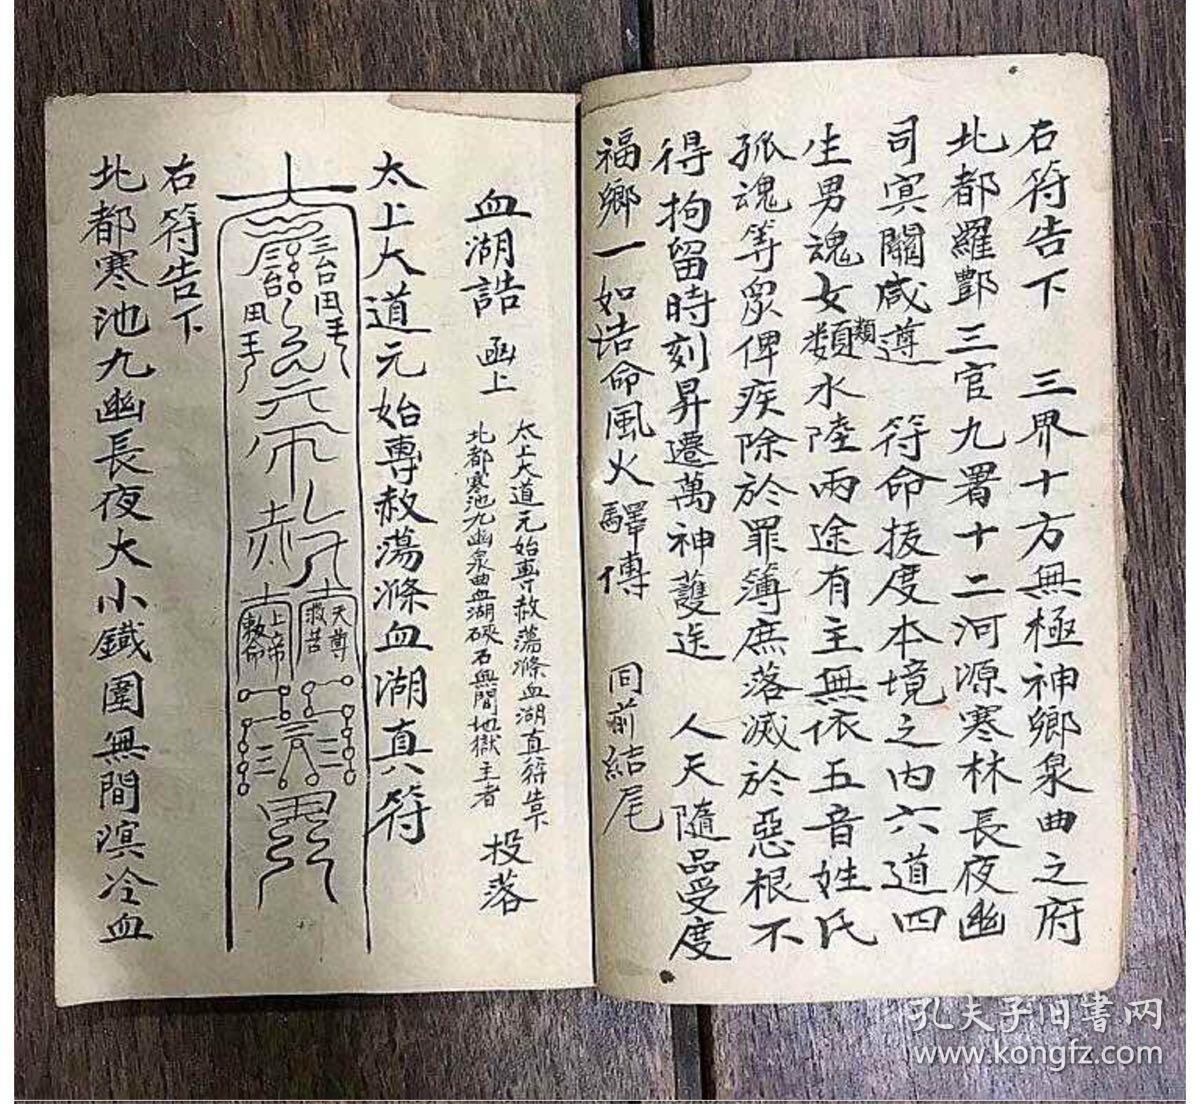 右符告下 三界十方無極神鄉泉曲之府
北都羅酆三官九署十二河源寒林長夜幽
司冥關咸遵 符命拔度本境之内六道四
生男魂女類類水陸兩途有主無依五音姓氏
孤魂等眾俾疾除於罪簿庶落滅於惡根不
得拘留時刻昇遷萬神護送 人天隨品受度
福鄉一如诰命風火驛傳 同前結尾
血湖誥 函上
太上大道元始專赦蕩滌血湖真符告下
北都寒池九幽泉曲血湖硤石無間地獄主者
投落
太上大道元始專赦蕩滌血湖真符
三台
田
台
田
天尊
救苦
上帝
敕命
右符告下
北都寒池九幽長夜大小鐵圍無間溟冷血
孔夫子旧书网
www.kongfz.com